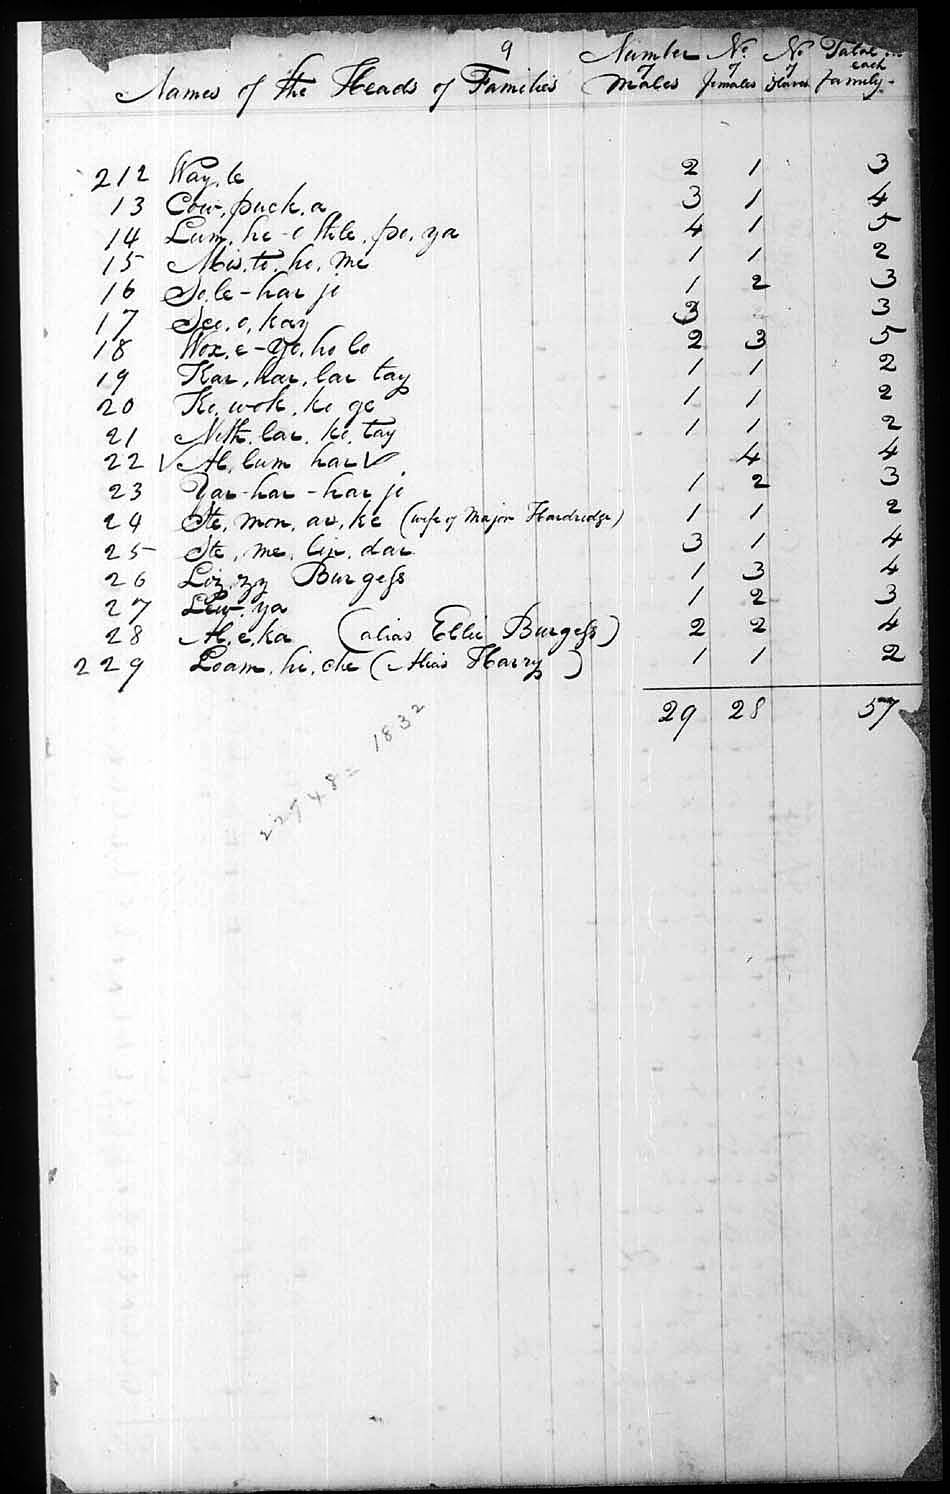 9
Names of the Heads of Families Number of Males No. of females No of Slaves Total each family
212 Way, le 2 1 3
13 Cow, puck, a 3 1 4
14 Lum, he-o thle, po, ya 4 1 5
15 Mis, te, ho, me 1 1 2
16 So, le-har jo 1 2 3
17 Sco, o, kay 3 3
18 Wox, e-Yo, ho lo 2 3 5
19 Kar, har, lar tay 1 1 2
20 Ko, wok, ko ge 1 1 2
21 Neth, lar, ko, tay 1 1 2
22 Al, lum har 4 4
23 Yar-har-har jo 1 2 3
24 Ste, mon, ar, ke (wife of Major Hardridge) 1 1 2
25 Ste, me, lin, dar 3 1 4
26 Liz, zy Burgess 1 3 4
27 Lew, ya 1 2 3
28 Al, e, ka (alias Ellie Burgess) 2 2 4
229 Loam, hi, che (Alias Harry) 1 1 2
29 28 57
22748=1832